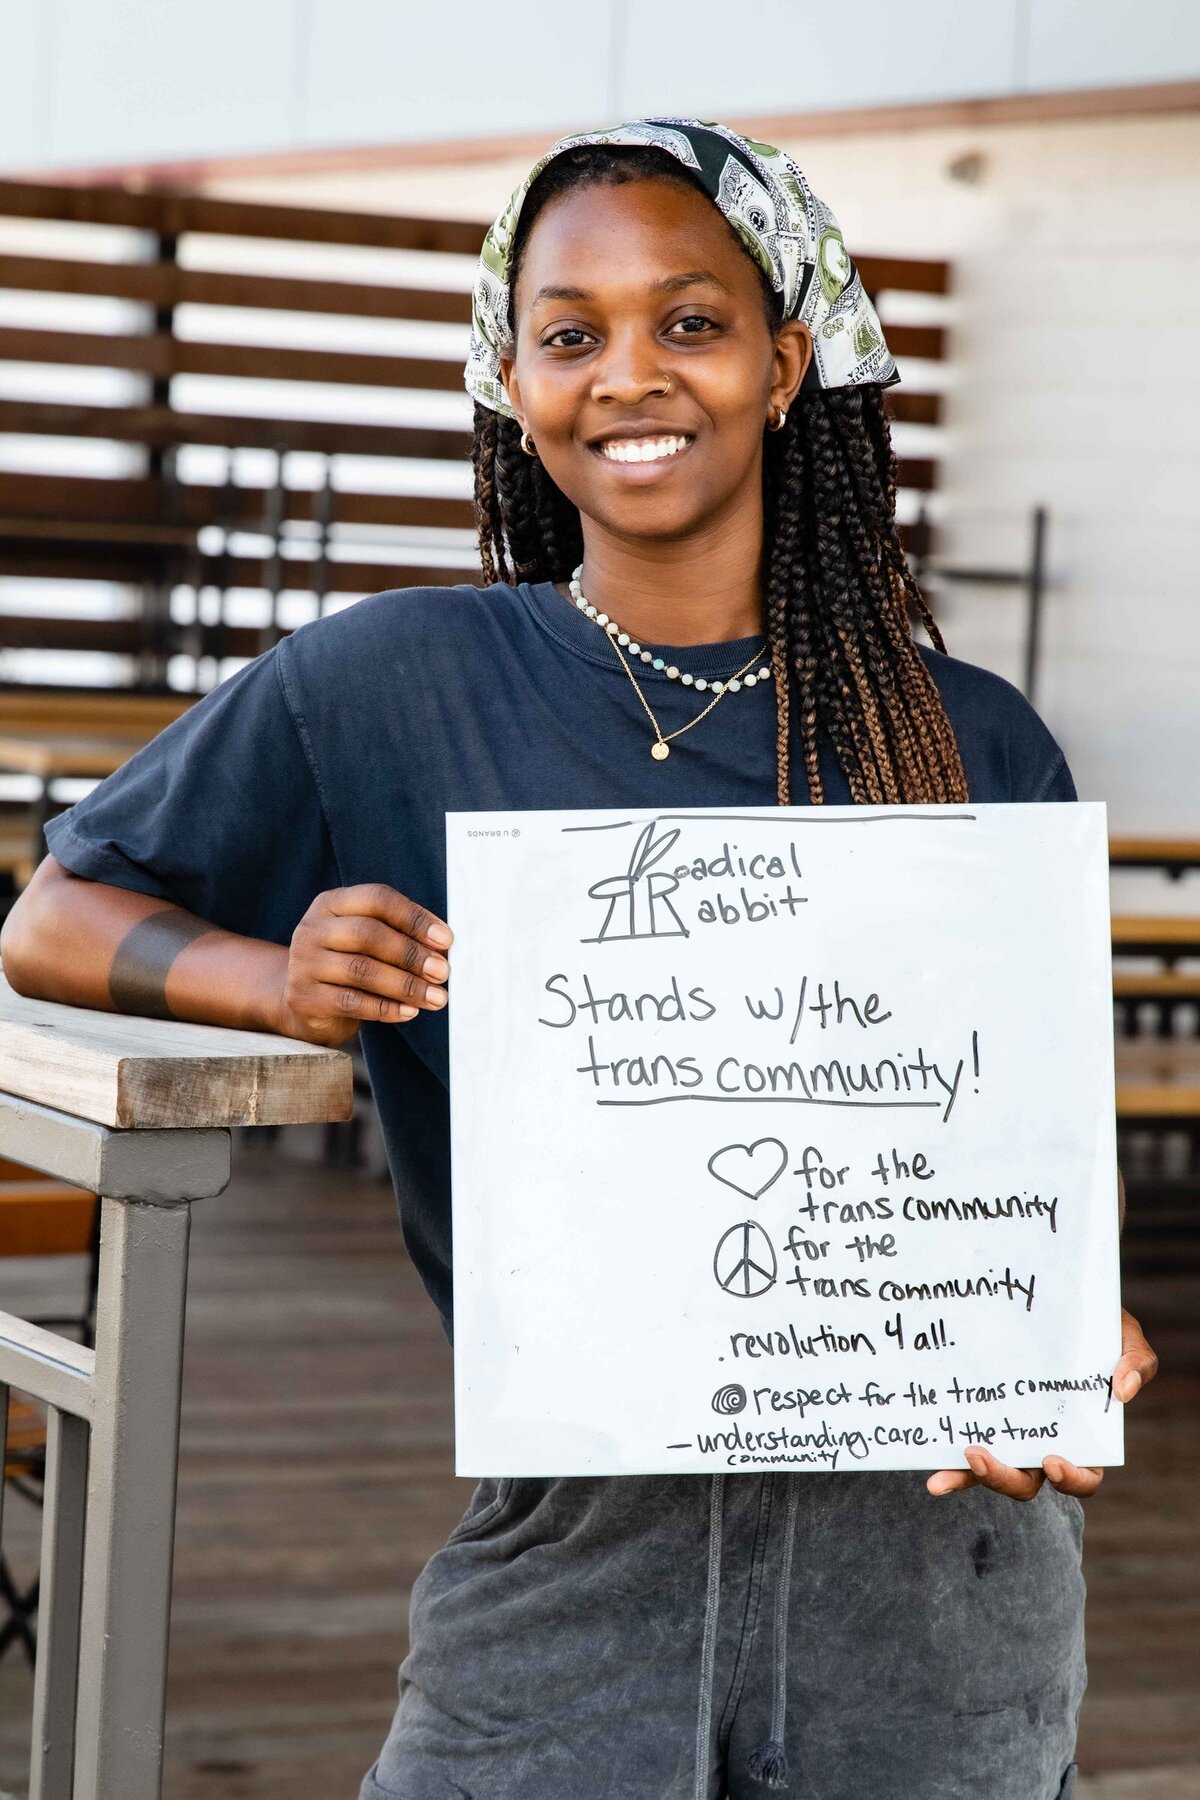 U BRANDS
Radical
Rabbit
Stands w/the
trans community!
for the
trans community
for the
trans community
.revolution 4 all.
respect for the trans community
– understanding.care.4 the trans
community